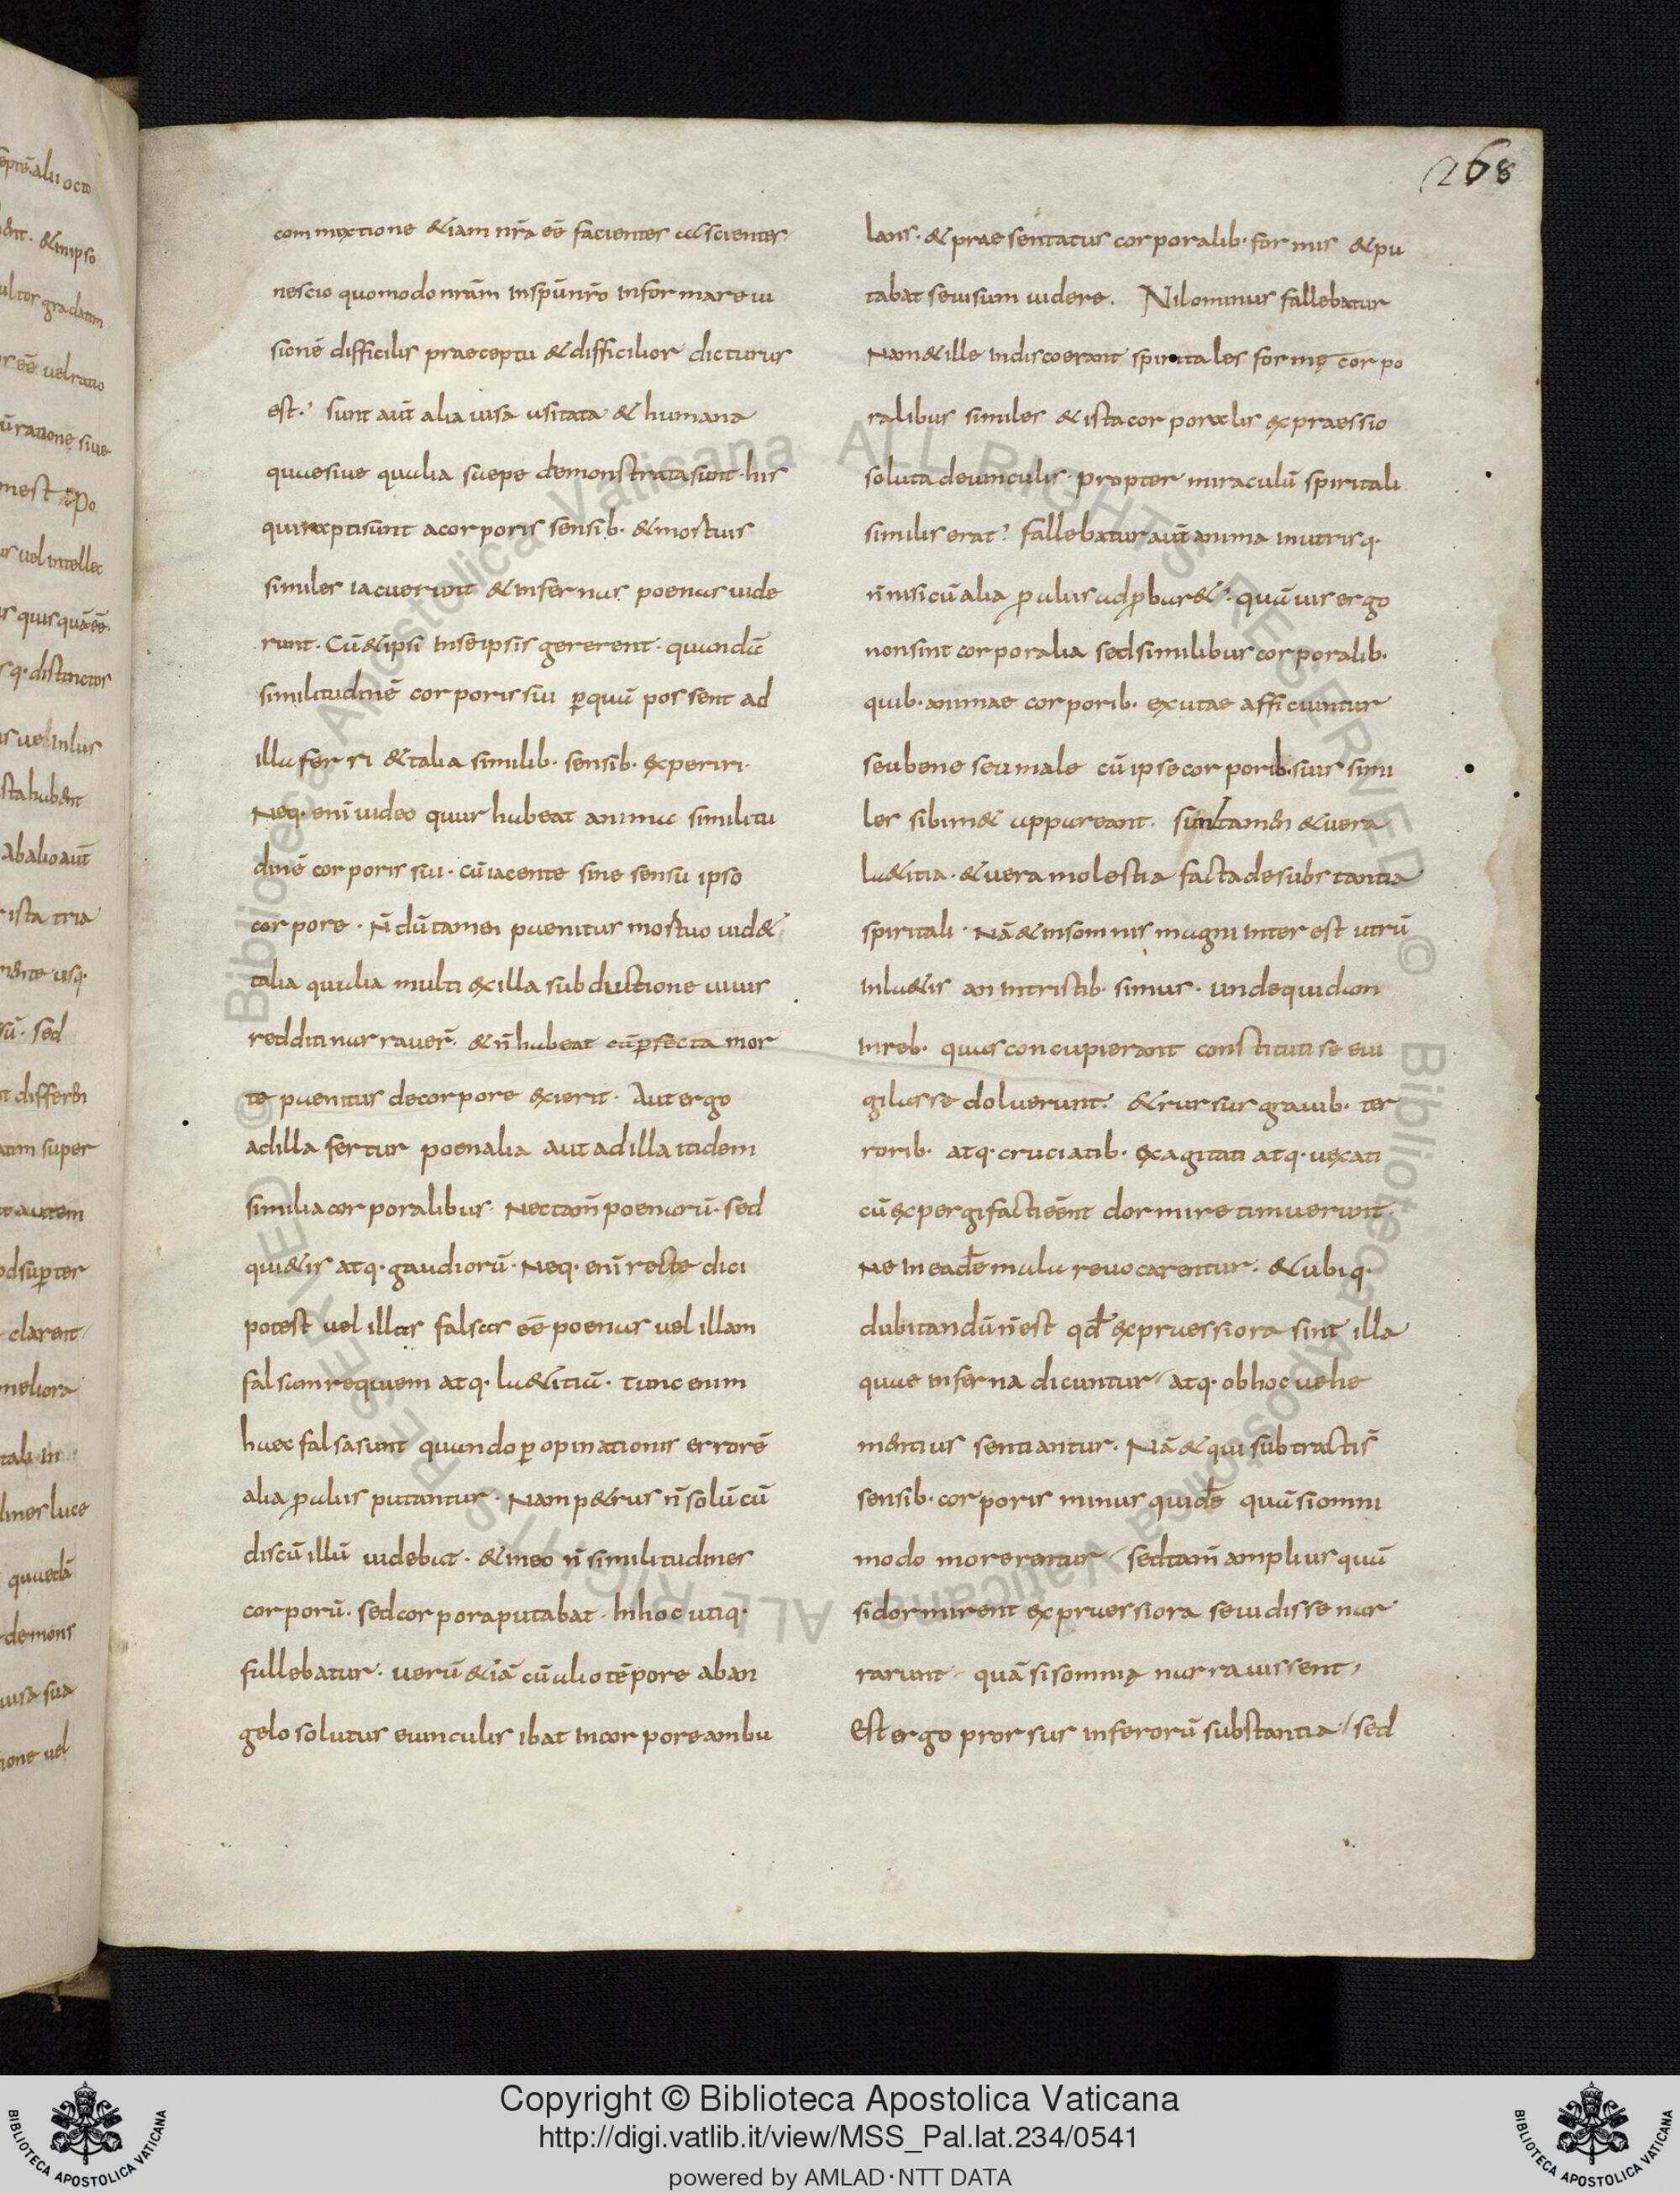 268
commixtione &iam nr̄a eē facientes ac scientes·
nescio quomodo nrām inspūnr̄o informare ui
sionē difficilis praeceptu & difficilior dicturus
est·' sunt aūt alia uisa usitata & humana
quaesiue qualia saepe demonstrata sunt· his
qui rapti sunt a corporis sensib· & mortuis
similes iacuerunt & infernas poenas uide
runt· Cū & ipsi in seipsis gererent· quandā
similitudinē corporis sui p̱ quā possent ad
illa ferri & talia similib· sensib· experiri·
Neq· eni uideo quur habeat anima similitu
dinē corporis sui· cū iacente sine sensu ipso
corpore· n̄ dū tamen paenitus mortuo uid&
talia qualia multi ex illa subductione uiuis
redditi narrauer̄· & n̄ habeat cū p̱fecta mor
te paenitus de corpore exierit· Aut ergo
ad illa fertur poenalia aut ad illa itidem
similia corporalibus· Nec tam̄ poenarū· sed
qui&is atq· gaudiorū· Neq· eni recte dici
potest uel illas falsas eē poenas uel illam
falsam requiem atq· la&itiā· tunc enim
haec falsa sunt quando p̱ opinationis errorē
alia p̱ aliis putantur· Nam p&rus n̄ solū cū
discū illū uidebat· & in eo n̄ similitudines
corporū· sed corpora putabat· In hoc utiq·
fallebatur· uerū & iā cū alio tēpore ab an
gelo solutus e uinculis ibat in corpore ambu
lans· & praesentatus corporalib· formis & pu
tabat se uisum uidere· Nilominus fallebatur
Nam & ille in disco erant spiritales formę corpo
ralibus similes & ista corporalis expraessio
soluta de uinculis· propter miraculū spiritali
similis erat·' fallebatur aūt anima in utrisq·
n̄ nisi cū alia p̱ aliis adp̱bar&· quāuis ergo
non sint corporalia sed similibus corporalib·
quib· animae corporib· exutae afficiuntur
seu bene seu male cū ipse corporib· suis simi
les sibim& appareant· sunt tamen & uera
la&itia· & uera molestia facta de substantia
spiritali· Nā & in somnis magni interest utrū
in la&is an in tristib· simus· unde quidam
in reb· quas concupierant constituti se eui
gilasse doluerunt· & rursus grauib· ter
rorib· atq· cruciatib· exagitati atq· uexati
cū expergifacti eēnt dormire timuerunt·
Ne in eadē mala reuocarentur· & ubiq·
dubitandū n̄ est qd̄ expraessiora sint illa
quae inferna dicuntur/ atq· ob hoc uehe
mentius sentiantur· Nā & qui subtractis
sensib· corporis minus quidē quā si omni
modo morerentur/ sed tam̄ amplius quā
si dormirent expraessiora se uidisse nar
rarunt/ quā si somnię narrauissent/
Est ergo prorsus inferorū substantia·/ sed
Copyright © Biblioteca Apostolica Vaticana
http://digi.vatlib.it/view/MSS_Pal.lat.234/0541
powered by AMLAD·NTT DATA
BIBLIOTECA APOSTOLICA VATICANA
BIBLIOTECA APOSTOLICA VATICANA